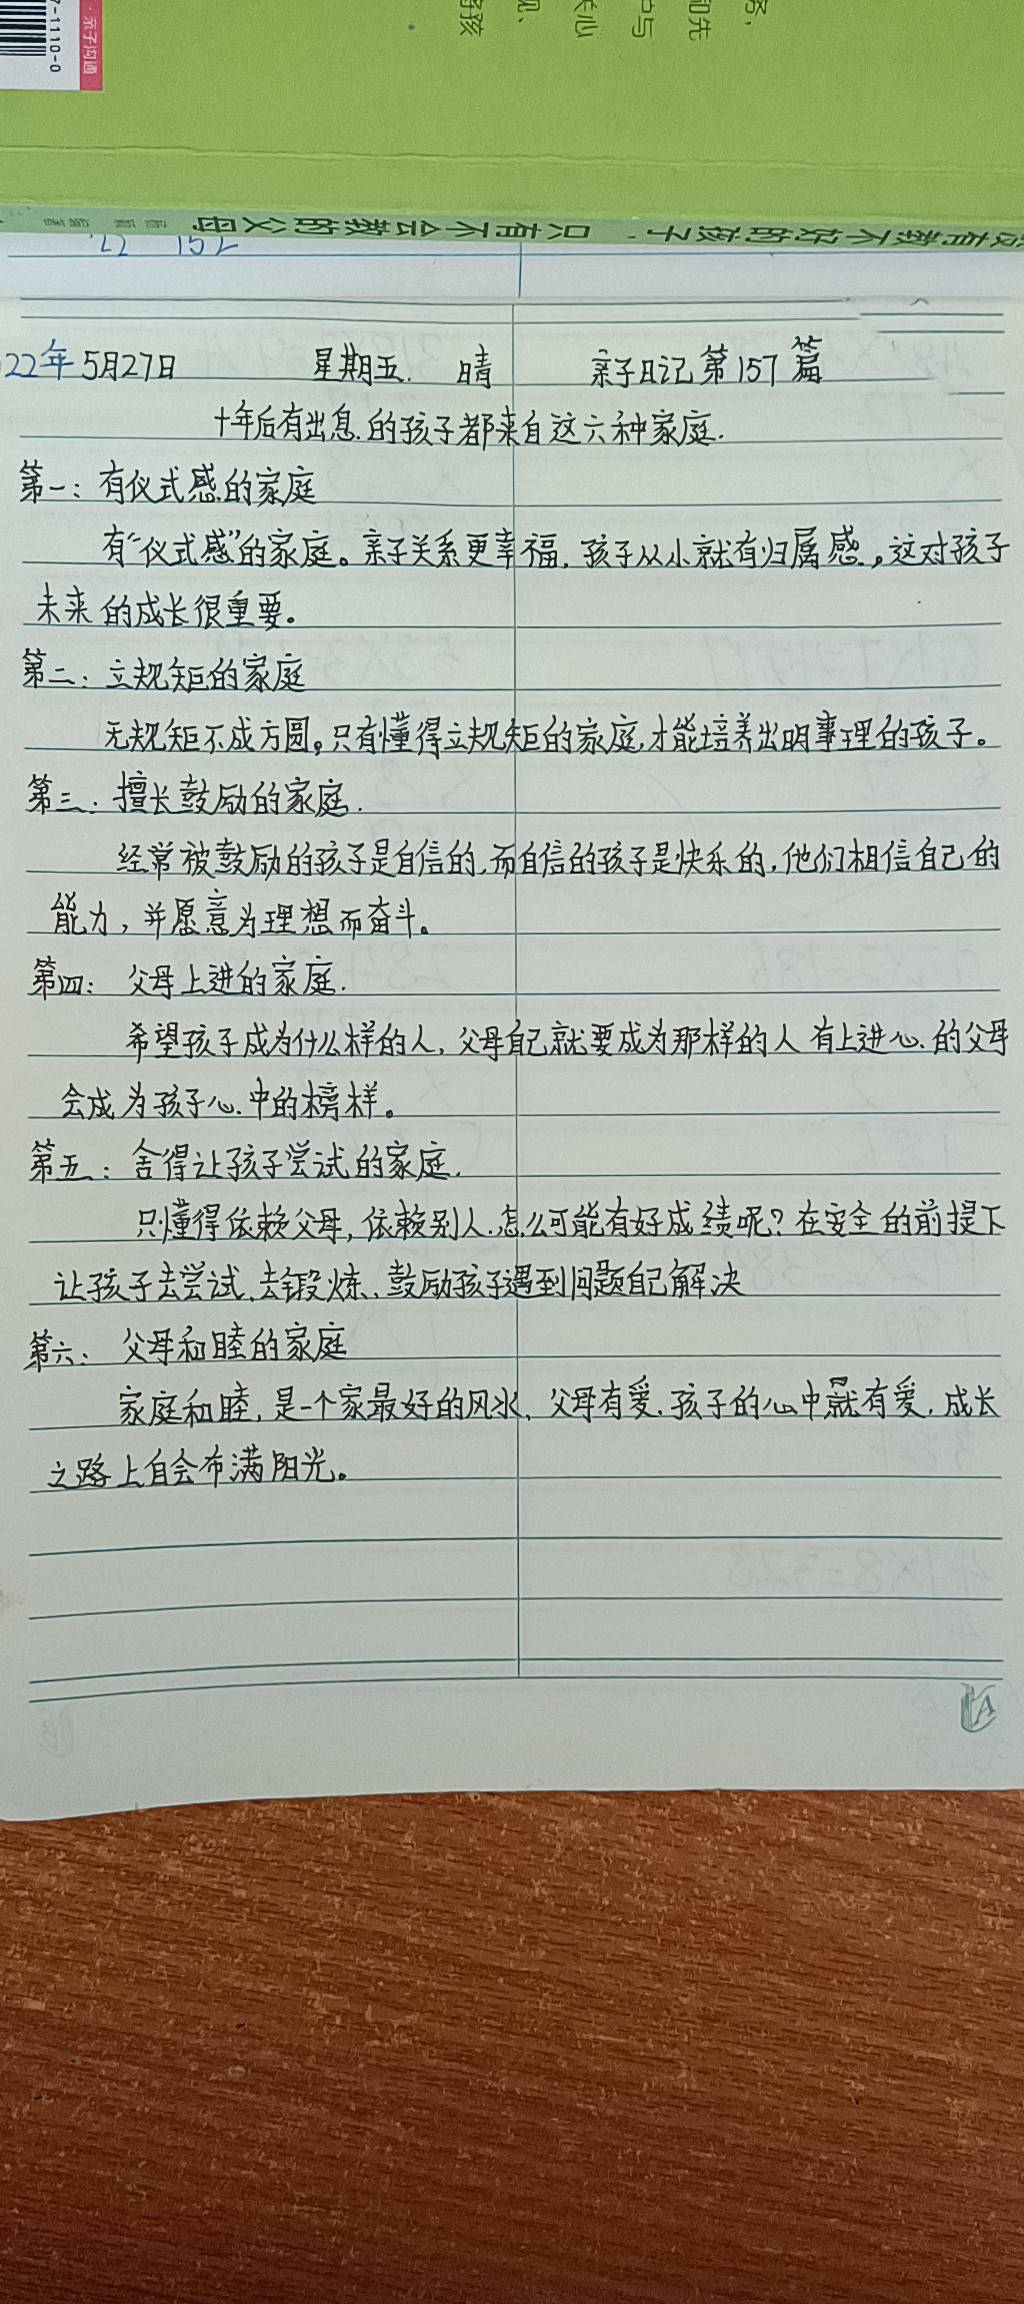 7-1110-0
亲子沟通
好孩
观、
关心
户与
和先
务，
没有教不好的孩子，只有不会教的父母
22 152
22年5月27日 星期五. 晴 亲子日记第157篇
十年后有出息的孩子都来自这六种家庭.
第一：有仪式感的家庭
有“仪式感”的家庭。亲子关系更幸福，孩子从小就有归属感，这对孩子
未来的成长很重要。
第二：立规矩的家庭
无规矩不成方圆，只有懂得立规矩的家庭，才能培养出明事理的孩子。
第三：擅长鼓励的家庭.
经常被鼓励的孩子是自信的，而自信的孩子是快乐的，他们相信自己的
能力，并愿意为理想而奋斗。
第四：父母上进的家庭.
希望孩子成为什么样的人，父母自己就要成为那样的人 有上进心的父母
会成为孩子心中的榜样。
第五：舍得让孩子尝试的家庭.
只懂得依赖父母，依赖别人.怎么可能有好成绩呢？在安全的前提下
让孩子去尝试、去锻炼、鼓励孩子遇到问题自己解决
第六：父母和睦的家庭
家庭和睦，是一个家最好的风水，父母有爱.孩子的心中就有爱，成长
之路上自会布满阳光。